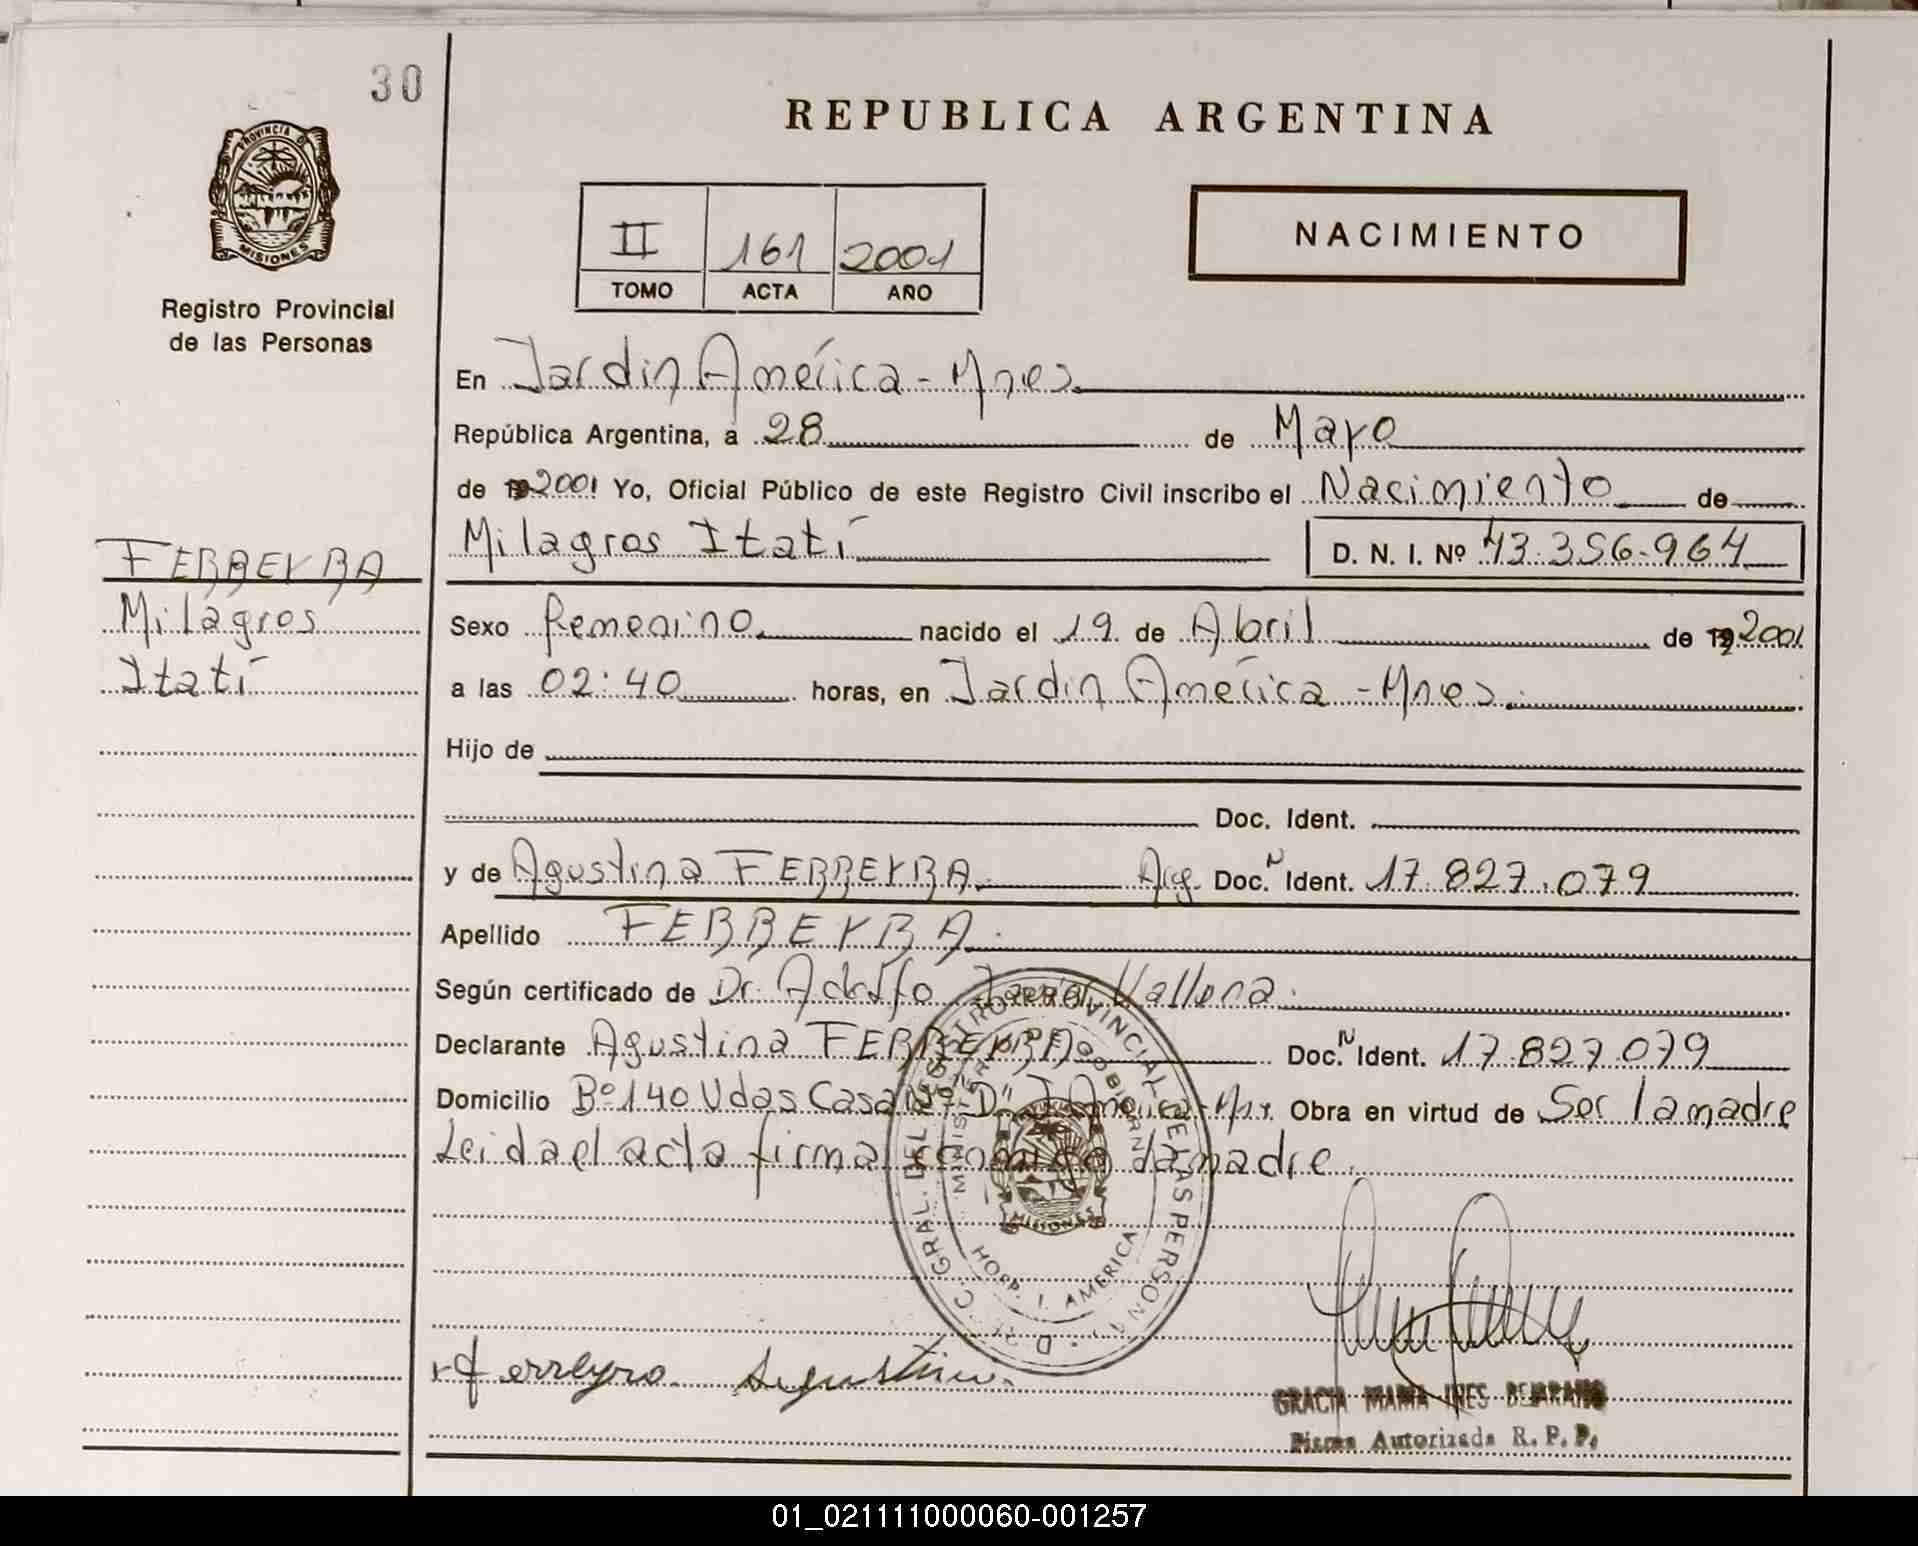 30
REPUBLICA ARGENTINA
PROVINCIA DE
MISIONES
Registro Provincial
de las Personas
II 161 2001
TOMO ACTA AÑO
NACIMIENTO
En Jardín América - Mnes
República Argentina, a 28 de Mayo
de 19 2001 Yo, Oficial Público de este Registro Civil inscribo el Nacimiento de
Milagros Itatí D. N. I. Nº 43.356.964
FERREYRA
Milagros
Itatí
Sexo femenino nacido el 19 de Abril de 19 2001
a las 02:40 horas, en Jardín América - Mnes.
Hijo de
Doc. Ident.
y de Agustina FERREYRA Arg. Doc. N Ident. 17.827.079
Apellido FERREYRA.
Según certificado de Dr. Adolfo Vallena.
Declarante Agustina FERREYRA Doc. N Ident. 17.827.079
Domicilio Bº 140 Vdas Casa "D" J. América - Obra en virtud de Ser la madre
Leida el acta firma conmigo la madre.
DIREC. GRAL. DEL REGISTRO PROVINCIAL DE LAS PERSONAS
MINISTERIO DE GOBIERNO
MISIONES
HOSP. J. AMERICA
Ferreyra Agustina
GRACIA MARIA INES BEJARANO
Firma Autorizada R. P. P.
01_021111000060-001257